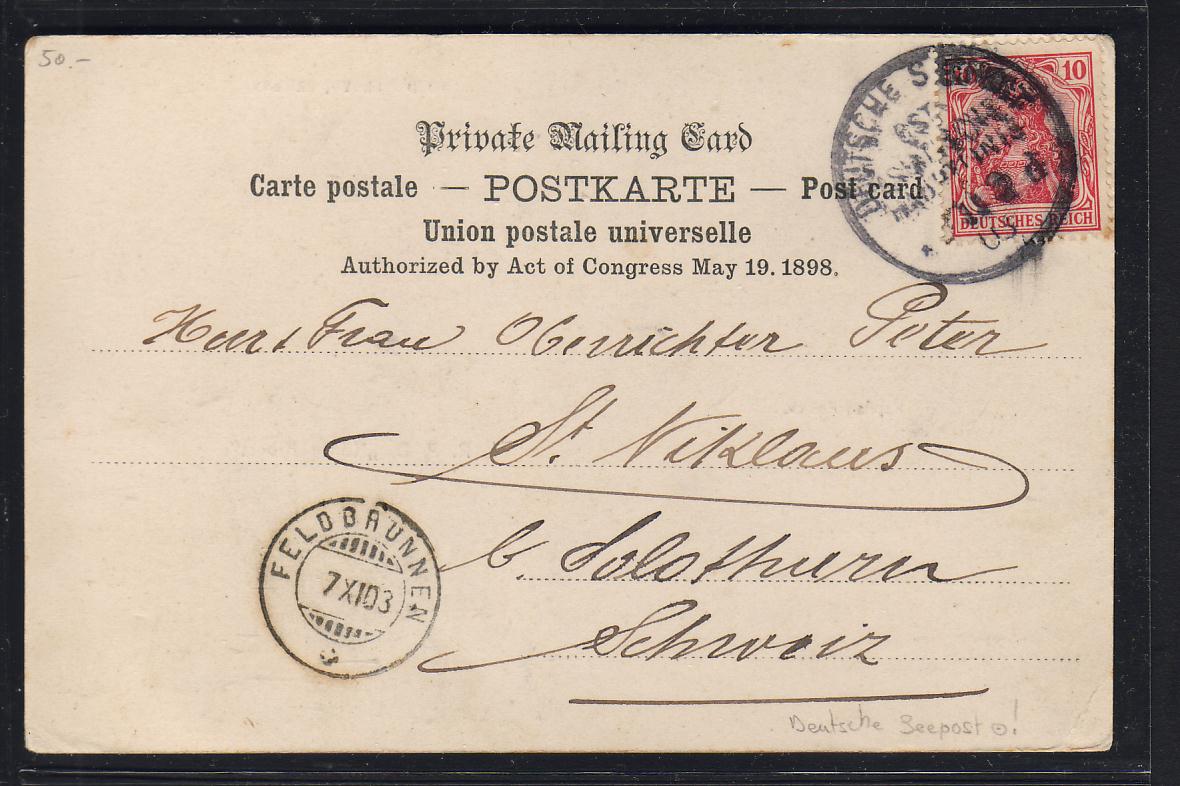 50.-
Private Mailing Card
Carte postale — POSTKARTE — Post card
Union postale universelle
Authorized by Act of Congress May 19. 1898.
DEUTSCHE
10
DEUTSCHES REICH
03
Frau Oberrichter Peter
St. Niklaus
b. Solothurn
Schweiz
FELDBRUNNEN
7 XI 03
Deutsche Seepost !